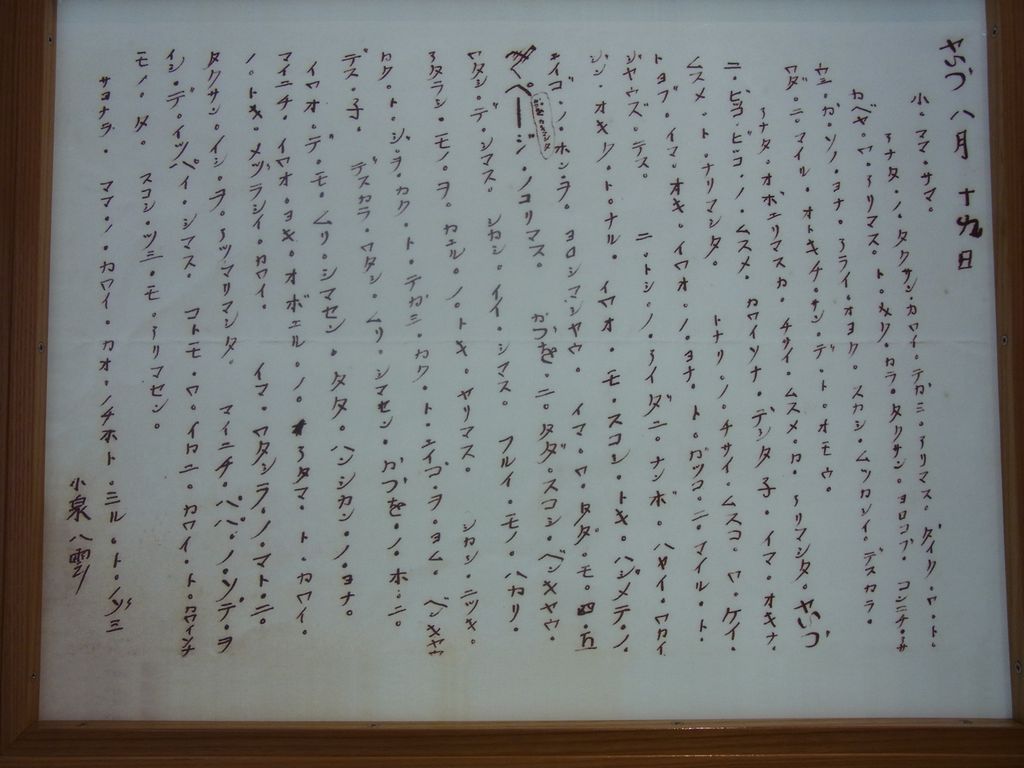 やいづ 八月 十九日
小・ママ・サマ。
アナタ・ノ・タクサン・カワイ・テガミ・アリマス・ダイク・ワ・ト・
カベヤ・ワ・アリマス。ト・メク・カラ・タクサン・ヨロコブ・コンニチ・ア・サ
ウミ・ガ・ソノ・ヨナ・アライ・オヨグ・スカシ・ムツカシイ・デスカラ・
ワダ・ニ・マイル・オトキチ・サン・デ・ト・オモウ。
アナタ・オボエリマスカ・チサイ・ムスメ・カ・アリマシタ・やいづ
ニ・ビッコ・ノ・ムスメ。カワイソナ・デシタ・子・イマ・オキナ・
ムスメ・ト・ナリマシタ。トナリ・ノ・チサイ・ムスコ・ワ・ケイ・
トヨブ・イマ・オキ・イワオ・ノ・ヨナ・ト・ガッコ・ニ・マイル・ト・
ジヤウズ・デス。ニ・トシ・ノ・アイダ・ニ・ナンボ・ハヤイ・ワカイ
ジン・オキク・ト・ナル。イワオ・モ・スコシ・トキ・ハジメテ・ノ・
エイゴ・ノ・ホン・ヲ。ヨロシマシヤウ。イマ・ワ・タダ・モ・四・五
ページ・ノコリマス。かづを・ニ・タダ・スコシ・ベンキヤウ・
ワタシ・デ・シマス。シカシ・イイ・シマス。フルイ・モノ・バカリ・
アタラシ・モノ・ヲ・カエル・ノ・トキ・ヤリマス。シカシ・ニツキ・
カク・ト・ジ・ヲ・カク・ト・テガミ・カク・ト・エイゴ・ヲ・ヨム・ベンキヤウ
デス・子・デスカラ・ワタシ・ムリ・シマセン・かづを・ノ・ホ・ニ。
イワオ・デ・モ・ムリ・シマセン・タタ・ハンシカン・ノ・ヨナ。
マイニチ・イワオ・ヨキ・オボエル・ノ・アタマ・ト・カワイ・
ノ・トキ・メヅラシイ・カワイ。イマ・ワタシラ・ノ・マト・ニ・
タクサン・イシ・ヲ・アツマリマシタ。マイニチ・パパ・ノ・ソデ・ヲ
イシ・デ・イッパイ・シマス。コトモ・ワ・イカニ・カワイ・ト・
モノ・ダ・スコシ・ツミ・モ・アリマセン。
サヨナラ・ママ・ノ・カワイ・カオ・ノチホト・ミル・ト・ノゾミ
小泉八雲